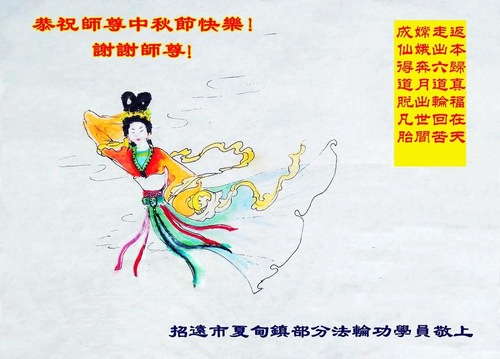 恭祝師尊中秋節快樂!
謝謝師尊!
返本歸真福在天
走出六道輪回苦
嫦娥奔月出世間
成仙得道脱凡胎
招遠市夏甸鎮部分法輪功學員敬上